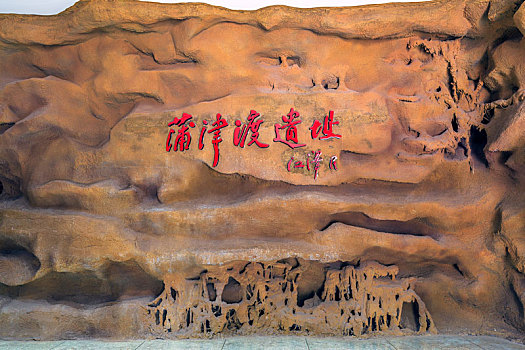 蒲津渡遗址
江泽民